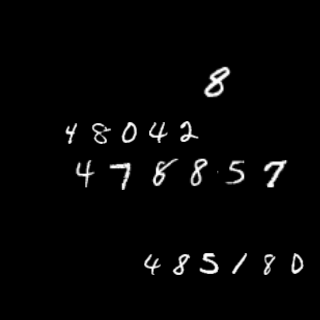 8
48042
478857
485180